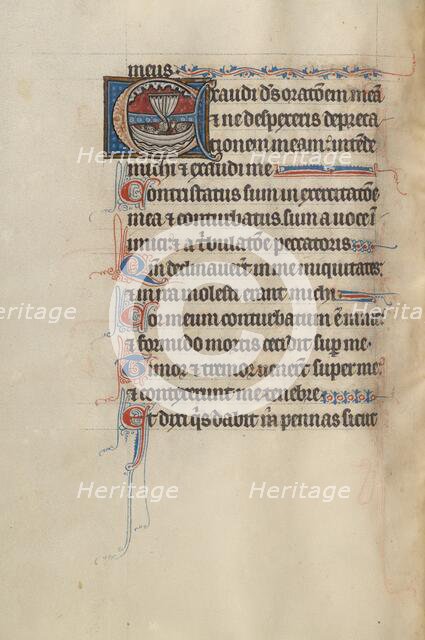 meus
Exaudi ds oratoem meā
& ne despexeris depreca
tionem meam: intende
michi & exaudi me
Contristatus sum in exercitatōe
mea & conturbatus sum a uoce in
imici & a tribulatōe peccatoris
Qm declinauerūt in me iniquitates:
& in ira molesti erant michi
Cor meum conturbatum ē in me
& formido mortis cecidit sup me
Timor & tremor uenerūt super me:
& contexerunt me tenebre
Et dixi q̄s dabit m̄ pennas sicut
Heritage
Heritage
Heritage
Heritage
Heritage
Heritage
Heritage
Heritage